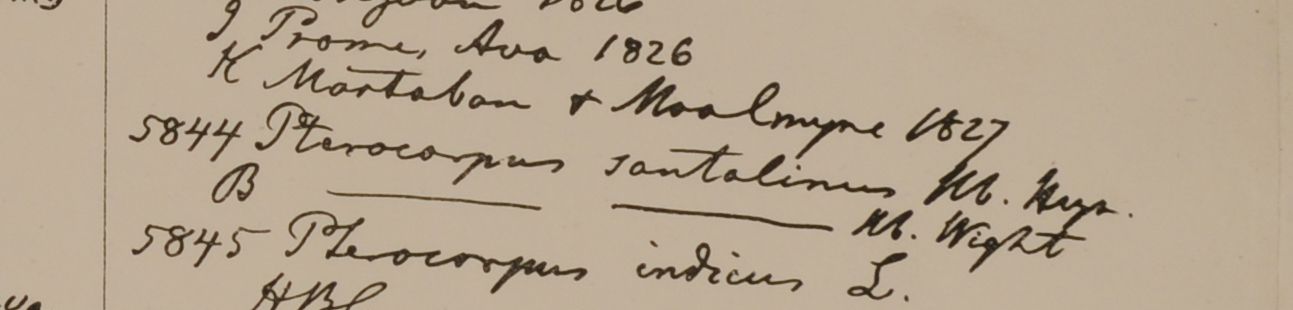 1826
J Prome, Ava 1826
K Martaban + Moalmyne 1827
5844 Pterocarpus santalinus Hb. Heyn.
B Hb. Wight
5845 Pterocarpus indicus L.
HBC